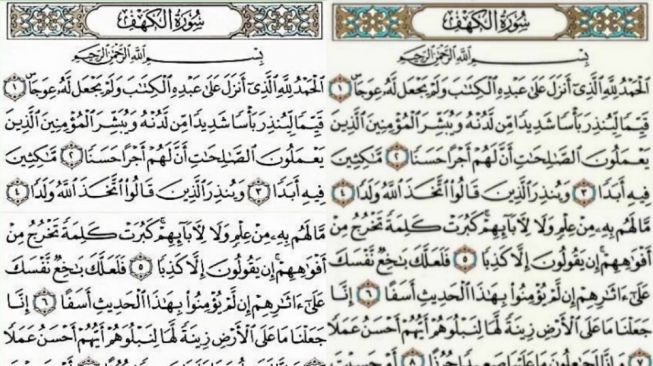 سُورَةُ الكَهْفِ
بِسْمِ اللَّهِ الرَّحْمَٰنِ الرَّحِيمِ
ٱلْحَمْدُ لِلَّهِ ٱلَّذِىٓ أَنزَلَ عَلَىٰ عَبْدِهِ ٱلْكِتَٰبَ وَلَمْ يَجْعَل لَّهُۥ عِوَجَاۜ ١
قَيِّمًا لِّيُنذِرَ بَأْسًا شَدِيدًا مِّن لَّدُنْهُ وَيُبَشِّرَ ٱلْمُؤْمِنِينَ ٱلَّذِينَ
يَعْمَلُونَ ٱلصَّٰلِحَٰتِ أَنَّ لَهُمْ أَجْرًا حَسَنًا ٢ مَّٰكِثِينَ
فِيهِ أَبَدًا ٣ وَيُنذِرَ ٱلَّذِينَ قَالُوا۟ ٱتَّخَذَ ٱللَّهُ وَلَدًا ٤
مَّا لَهُم بِهِۦ مِنْ عِلْمٍ وَلَا لِءَابَآئِهِمْ كَبُرَتْ كَلِمَةً تَخْرُجُ مِنْ
أَفْوَٰهِهِمْ إِن يَقُولُونَ إِلَّا كَذِبًا ٥ فَلَعَلَّكَ بَٰخِعٌ نَّفْسَكَ
عَلَىٰٓ ءَاثَٰرِهِمْ إِن لَّمْ يُؤْمِنُوا۟ بِهَٰذَا ٱلْحَدِيثِ أَسَفًا ٦ إِنَّا
جَعَلْنَا مَا عَلَى ٱلْأَرْضِ زِينَةً لَّهَا لِنَبْلُوَهُمْ أَيُّهُمْ أَحْسَنُ عَمَلًا
٧ وَإِنَّا لَجَٰعِلُونَ مَا عَلَيْهَا صَعِيدًا جُرُزًا ٨ أَمْ حَسِبْتَ
سُورَةُ الكَهْفِ
بِسْمِ اللَّهِ الرَّحْمَٰنِ الرَّحِيمِ
ٱلْحَمْدُ لِلَّهِ ٱلَّذِىٓ أَنزَلَ عَلَىٰ عَبْدِهِ ٱلْكِتَٰبَ وَلَمْ يَجْعَل لَّهُۥ عِوَجَاۜ ١
قَيِّمًا لِّيُنذِرَ بَأْسًا شَدِيدًا مِّن لَّدُنْهُ وَيُبَشِّرَ ٱلْمُؤْمِنِينَ ٱلَّذِينَ
يَعْمَلُونَ ٱلصَّٰلِحَٰتِ أَنَّ لَهُمْ أَجْرًا حَسَنًا ٢ مَّٰكِثِينَ
فِيهِ أَبَدًا ٣ وَيُنذِرَ ٱلَّذِينَ قَالُوا۟ ٱتَّخَذَ ٱللَّهُ وَلَدًا ٤
مَّا لَهُم بِهِۦ مِنْ عِلْمٍ وَلَا لِءَابَآئِهِمْ كَبُرَتْ كَلِمَةً تَخْرُجُ مِنْ
أَفْوَٰهِهِمْ إِن يَقُولُونَ إِلَّا كَذِبًا ٥ فَلَعَلَّكَ بَٰخِعٌ نَّفْسَكَ
عَلَىٰٓ ءَاثَٰرِهِمْ إِن لَّمْ يُؤْمِنُوا۟ بِهَٰذَا ٱلْحَدِيثِ أَسَفًا ٦ إِنَّا
جَعَلْنَا مَا عَلَى ٱلْأَرْضِ زِينَةً لَّهَا لِنَبْلُوَهُمْ أَيُّهُمْ أَحْسَنُ عَمَلًا